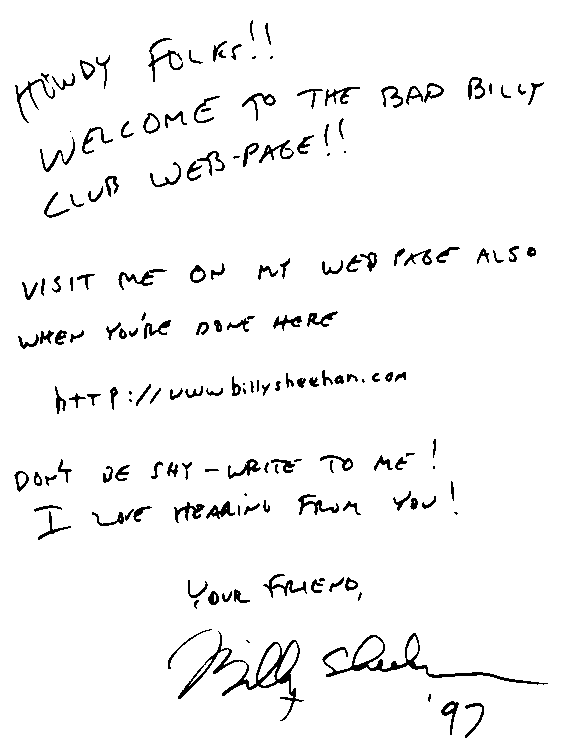 HOWDY FOLKS!!
WELCOME TO THE BAD BILLY
CLUB WEB-PAGE!!
VISIT ME ON MY WEB PAGE ALSO
WHEN YOU'RE DONE HERE
http://www.billysheehan.com
DON'T BE SHY - WRITE TO ME!
I LOVE HEARING FROM YOU!
YOUR FRIEND,
Billy Sheehan
'97